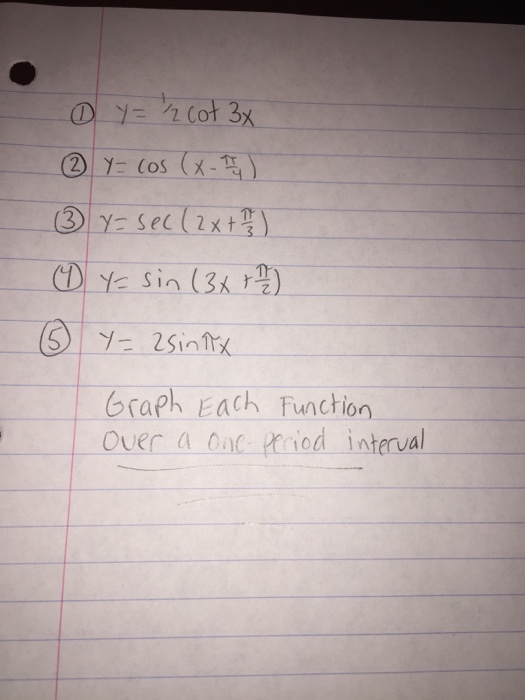 ① y = 1/2 cot 3x
② y = cos (x - π/4)
③ y = sec (2x + π/3)
④ y = sin (3x + π/2)
⑤ y = 2sinπx
Graph Each Function
Over a one-period interval